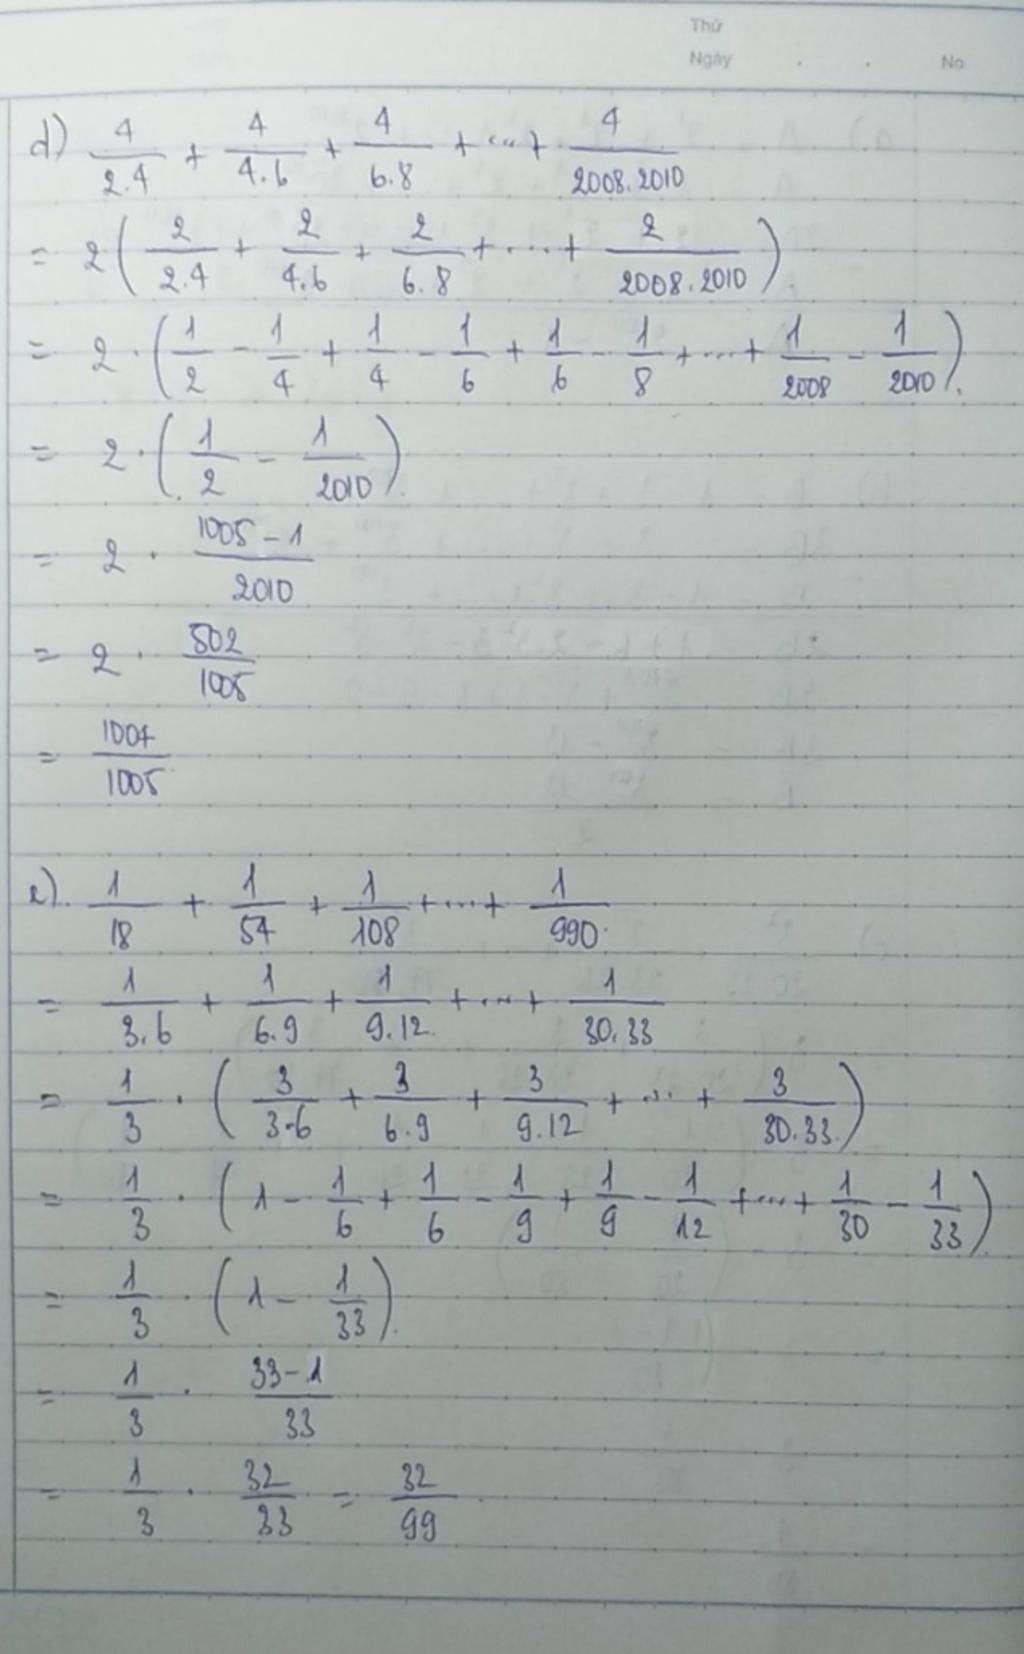 Thứ
Ngày . . No.
d) 4/2.4 + 4/4.6 + 4/6.8 + ... + 4/2008.2010
= 2 ( 2/2.4 + 2/4.6 + 2/6.8 + .... + 2/2008.2010 ).
= 2 . ( 1/2 - 1/4 + 1/4 - 1/6 + 1/6 - 1/8 + .... + 1/2008 - 1/2010 ).
= 2 . ( 1/2 - 1/2010 ).
= 2 . (1005 - 1)/2010
= 2 . 502/1005
= 1004/1005
e). 1/18 + 1/54 + 1/108 + .... + 1/990.
= 1/3.6 + 1/6.9 + 1/9.12. + .... + 1/30.33
= 1/3 . ( 3/3.6 + 3/6.9 + 3/9.12 + .... + 3/30.33. )
= 1/3 . ( 1 - 1/6 + 1/6 - 1/9 + 1/9 - 1/12 + .... + 1/30 - 1/33 ).
= 1/3 . ( 1 - 1/33 ).
= 1/3 . (33 - 1)/33
= 1/3 . 32/33 = 32/99.